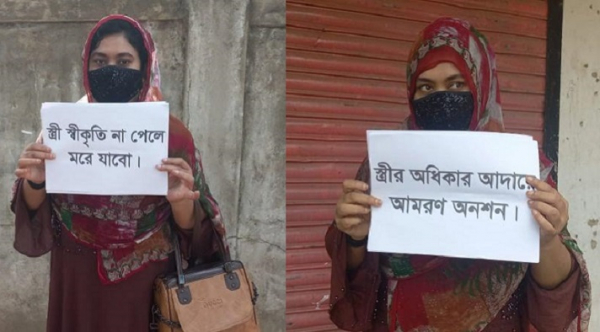 স্ত্রী স্বীকৃতি না পেলে
মরে যাবো।
স্ত্রীর অধিকার আদায়ে
আমরণ অনশন।